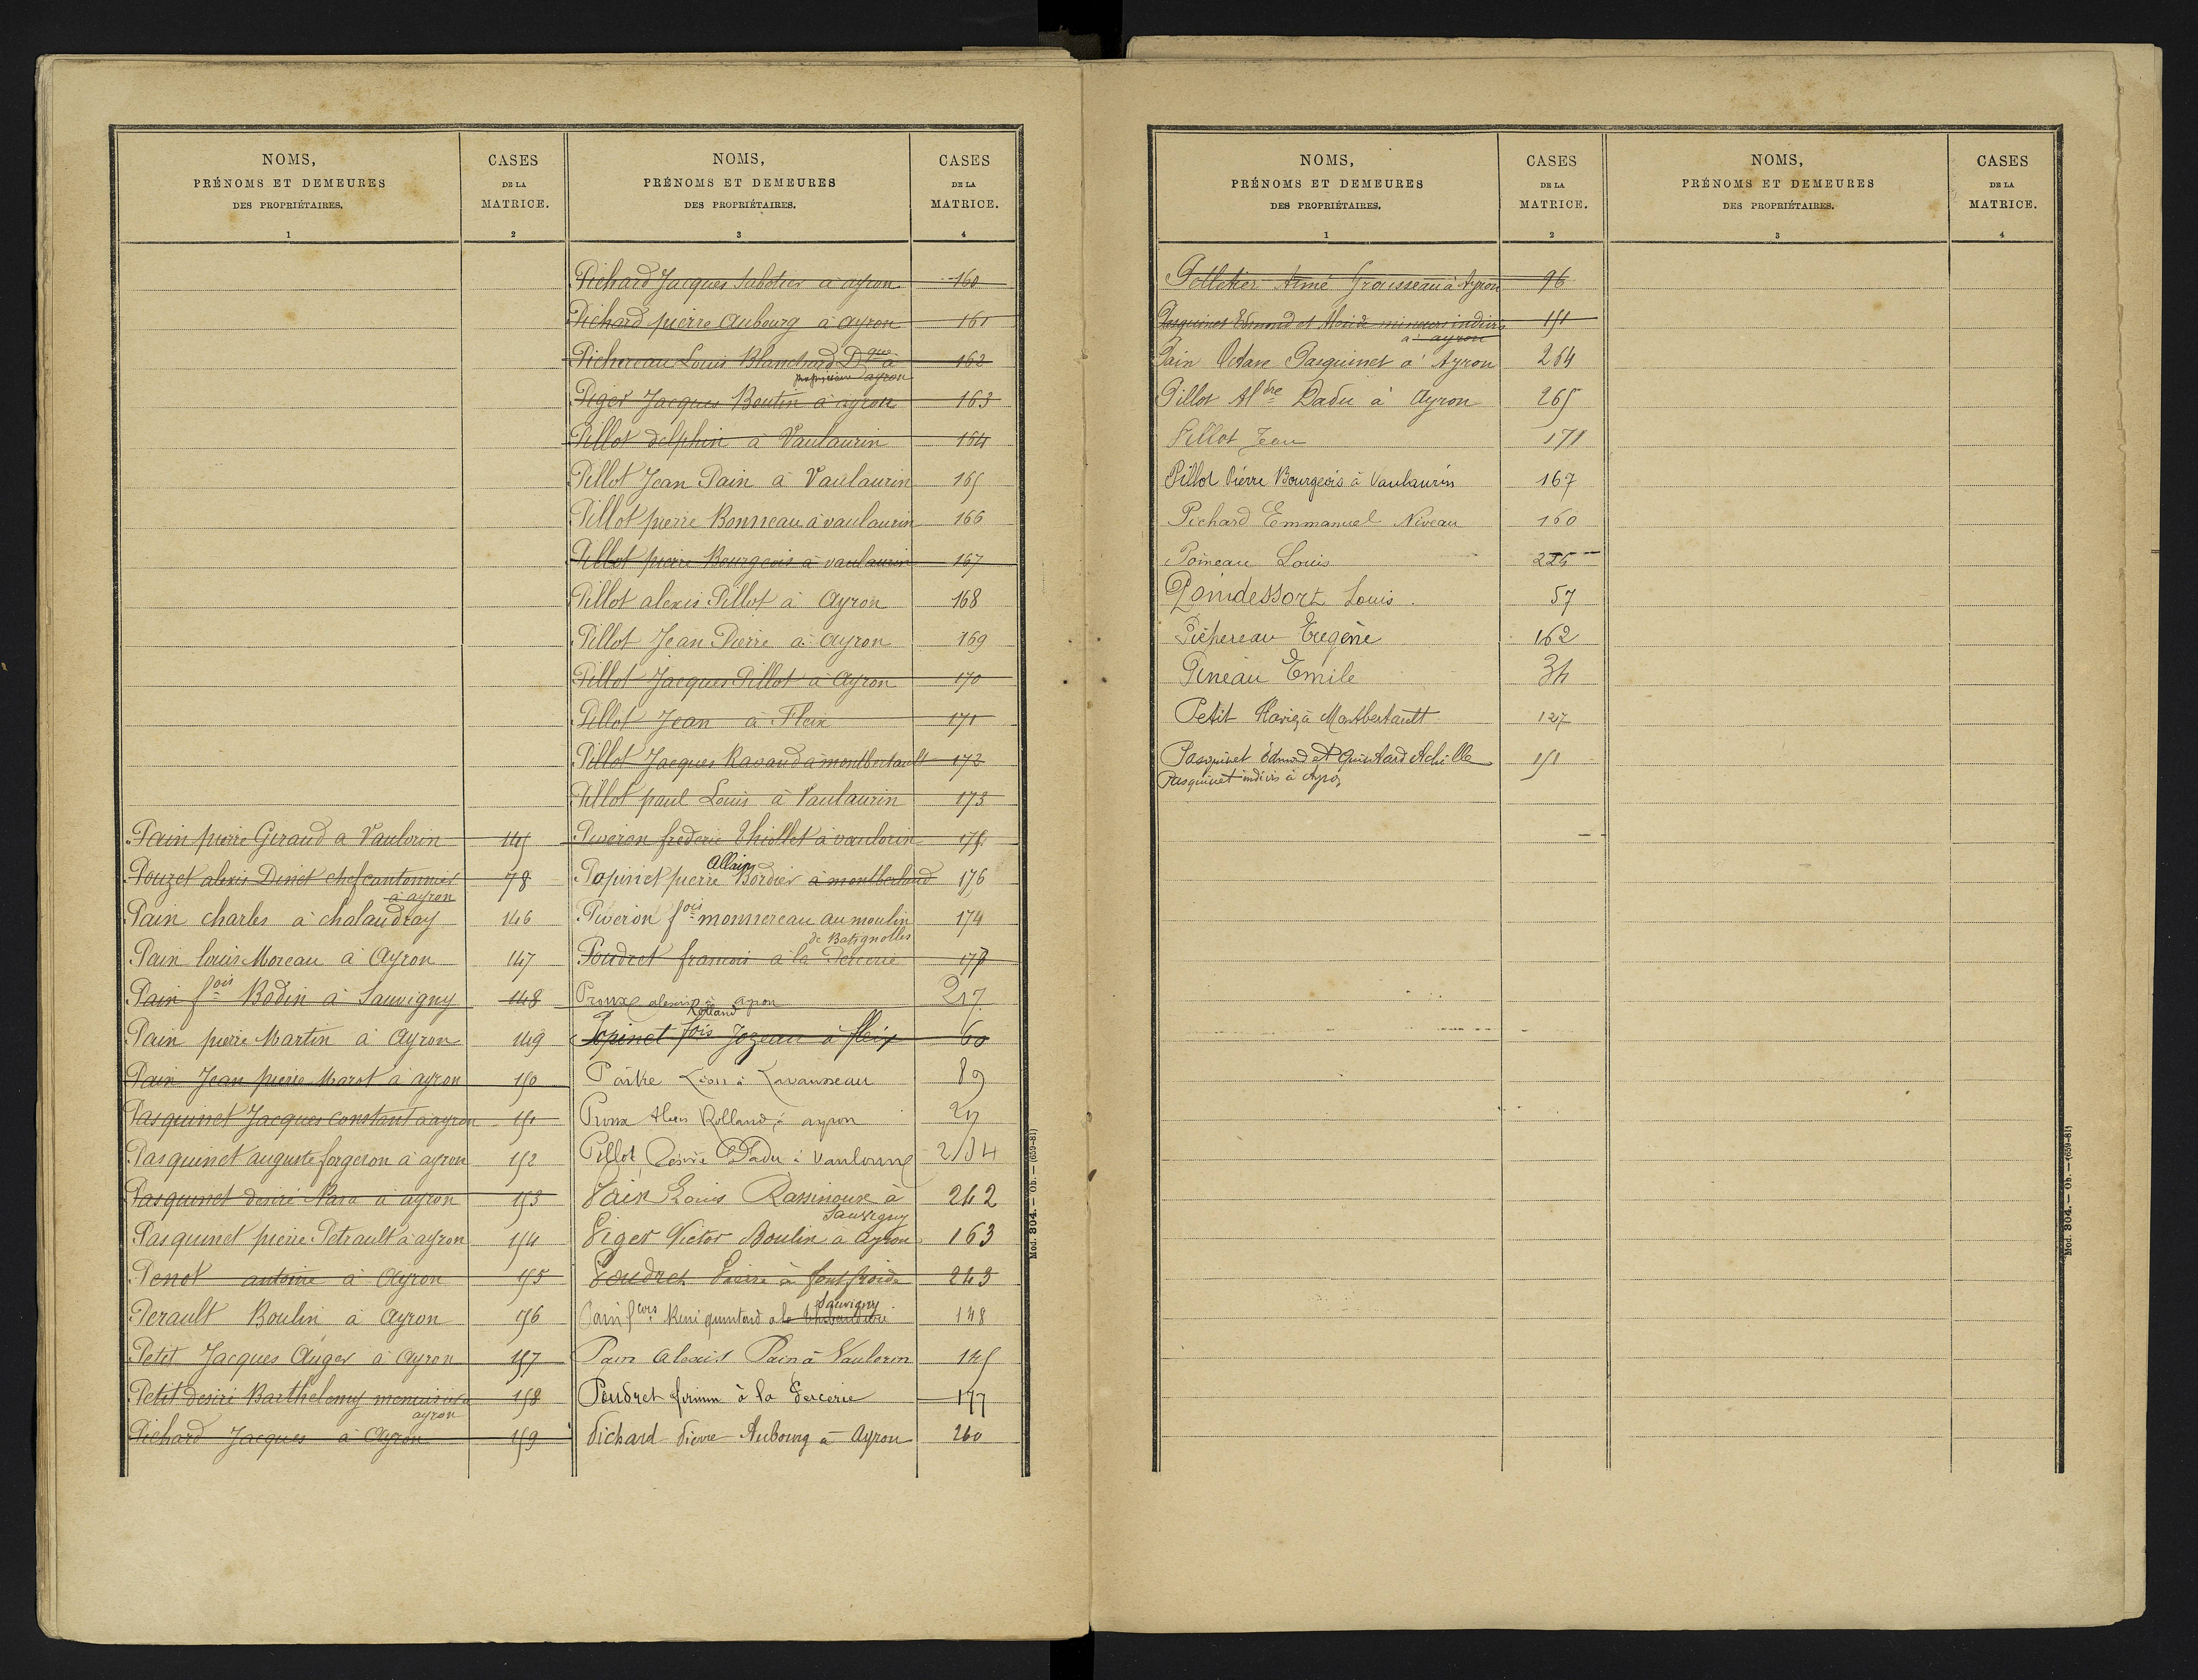 NOMS,
PRÉNOMS ET DEMEURES
DES PROPRIÉTAIRES.
1
CASES
DE LA
MATRICE.
2
Pain pierre Geraud a Vaulorin 145
Pouzet alexis Dinet chef cantonnier 78
à ayron
Pain charles à chalandray 146
Pain louis Moreau à Ayron 147
Pain fois Bodin à Sauvigny 148
Pain pierre Martin à Ayron 149
Pain Jean pierre Marot à ayron 150
Pasquinet Jacques constant à ayron 151
Pasquinet auguste forgeron à ayron 152
Pasquinet desiré Nara à ayron 153
Pasquinet pierre Petrault à ayron 154
Penot antoine à Ayron 155
Perault Boulin à Ayron 156
Petit Jacques Auger à Ayron 157
Petit desiré Barthelemy menuisier à 158
ayron
Pichard Jacques à Ayron 159
NOMS,
PRÉNOMS ET DEMEURES
DES PROPRIÉTAIRES.
3
CASES
DE LA
MATRICE.
4
Pichard Jacques Sabotier à ayron 160
Pichard pierre Aubourg à ayron 161
Pichereau Louis Blanchard Dque à 162
propriétaire ayron
Piger Jacques Boutin à ayron 163
Pillot delphin à Vaulaurin 164
Pillot Jean Pain à Vaulaurin 165
Pillot pierre Bonneau à vaulaurin 166
Pillot pierre Bourgeois à vaulaurin 167
Pillot alexis Pillot à Ayron 168
Pillot Jean Pierre à Ayron 169
Pillot Jacques Pillot à Ayron 170
Pillot Jean à Fleix 171
Pillot Jacques Ravaud à montbertault 172
Pillot paul Louis à Vaulaurin 173
Piveron frederic Thiollet à vaulorin 175
Allain
Popinet pierre Bordier à montberland 176
Piveron fois monnereau au moulin 174
de Batignolles
Poudret francois à la 177
Proux alexis à ayron 217
Rolland
Popinet fois Jozeau à fleix 60
Paitre Léon à Lavausseau 89
Proux Alexis Rolland, à ayron 217
Pillot Désiré Dadu à Vaulorin 234
Pain Louis Rassinoux à 242
Sauvigny
Piger Victor Boulin à Ayron 163
Poudret Pierre à fontfroide 243
Sauvigny
Pain fois René quintard à la 148
Pain Alexis Pain à Vaulorin 145
Poudret firmin à la 177
Pichard Pierre Aubourg à Ayron 260
Mod. 304. — Ob. — (659-81)
NOMS,
PRÉNOMS ET DEMEURES
DES PROPRIÉTAIRES.
1
CASES
DE LA
MATRICE.
2
Pelletier Aimé Grousseau à Ayron 96
Pasquinet Edmond et Marie mineurs indivis 151
à ayron
Pain Octave Pasquinet à Ayron 264
Pillot Aldre Dadu à Ayron 265
Pillot Jean 171
Pillot Pierre Bourgeois à Vaulaurin 167
Pichard Emmanuel Niveau 160
Poineau Louis 225
Poindessort Louis. 57
Pichereau Eugène 162
Pineau Emile 34
Petit à Montbertault 127
Pasquinet Edmond et Quintard Achille 151
Pasquinet indivis à Ayron
NOMS,
PRÉNOMS ET DEMEURES
DES PROPRIÉTAIRES.
3
CASES
DE LA
MATRICE.
4
Mod. 304. — Ob. — (659-81)